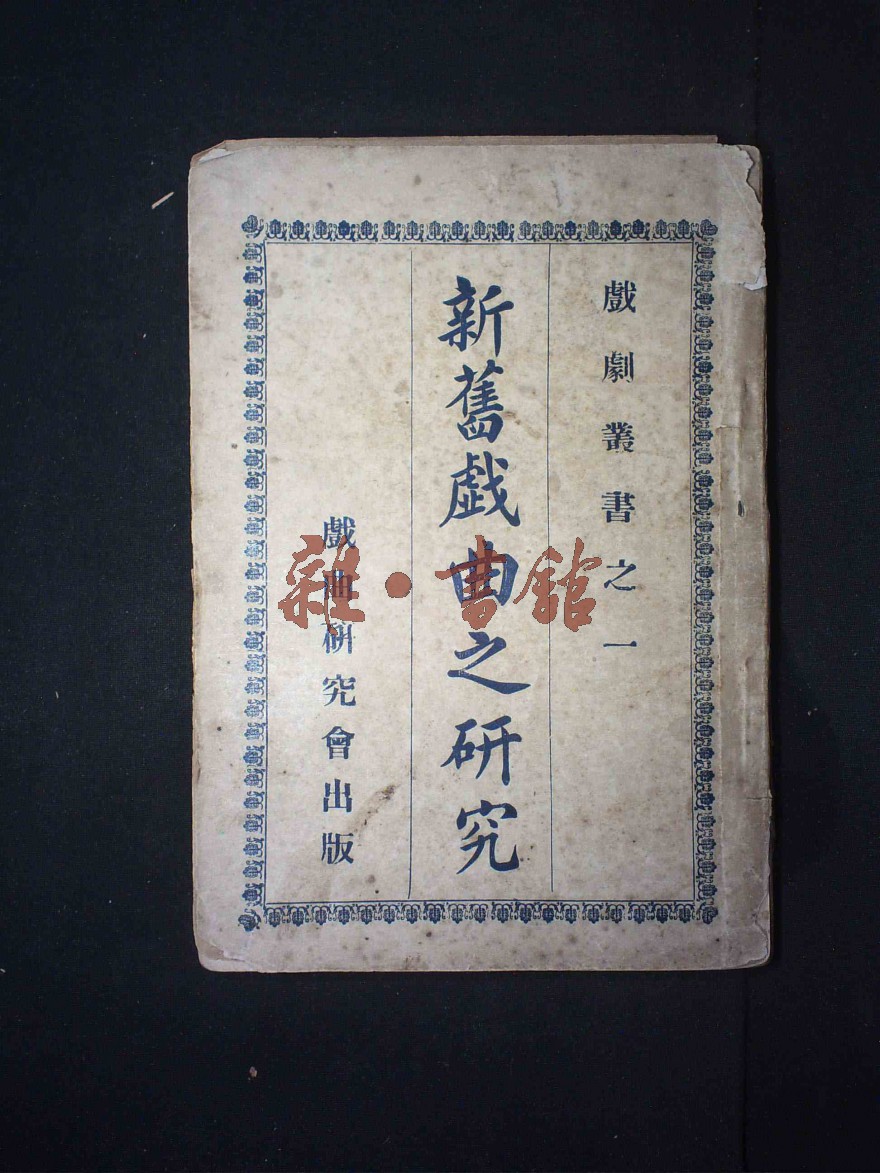 戲劇叢書之一
新舊戲曲之研究
戲曲研究會出版
雜·書館